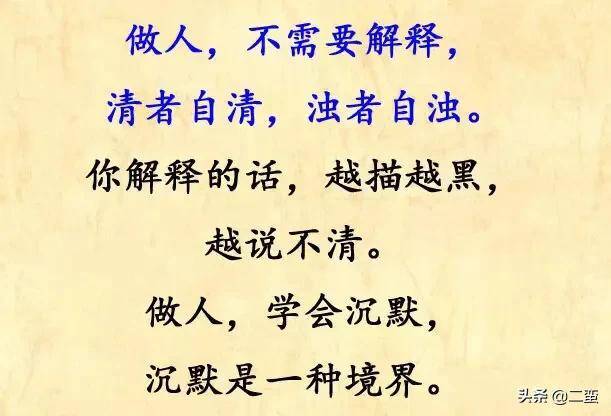 做人，不需要解释，
清者自清，浊者自浊。
你解释的话，越描越黑，
越说不清。
做人，学会沉默，
沉默是一种境界。
头条 @二茧